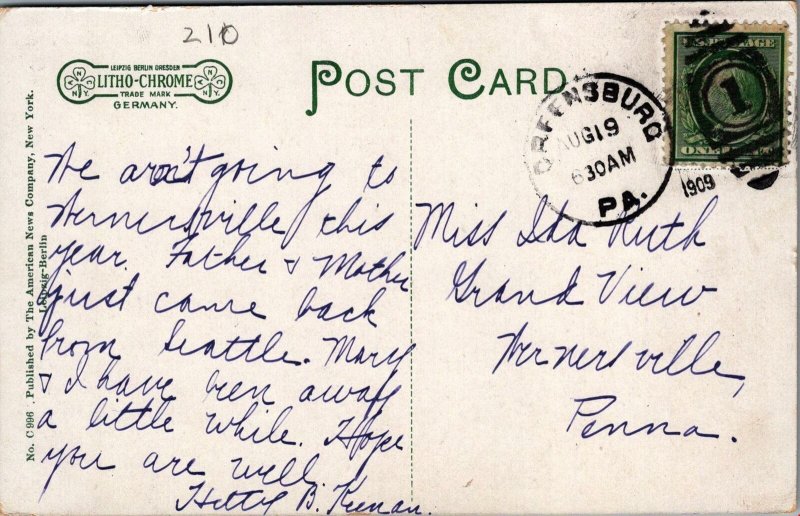 210
LEIPZIG BERLIN DRESDEN
LITHO-CHROME
TRADE MARK
GERMANY.
POST CARD.
GREENSBURG
AUG 19
630 AM
PA.
1909
1
No. C 996 . Published by The American News Company, New York.
Leipzig-Berlin
We aren't going to
Wernersville this
year. Father & Mother
just came back
from Seattle. Mary
& I have been away
a little while. Hope
you are well.
Hetty B. Keenan.
Miss Ida Ruth
Grand View
Wernersville,
Penna.